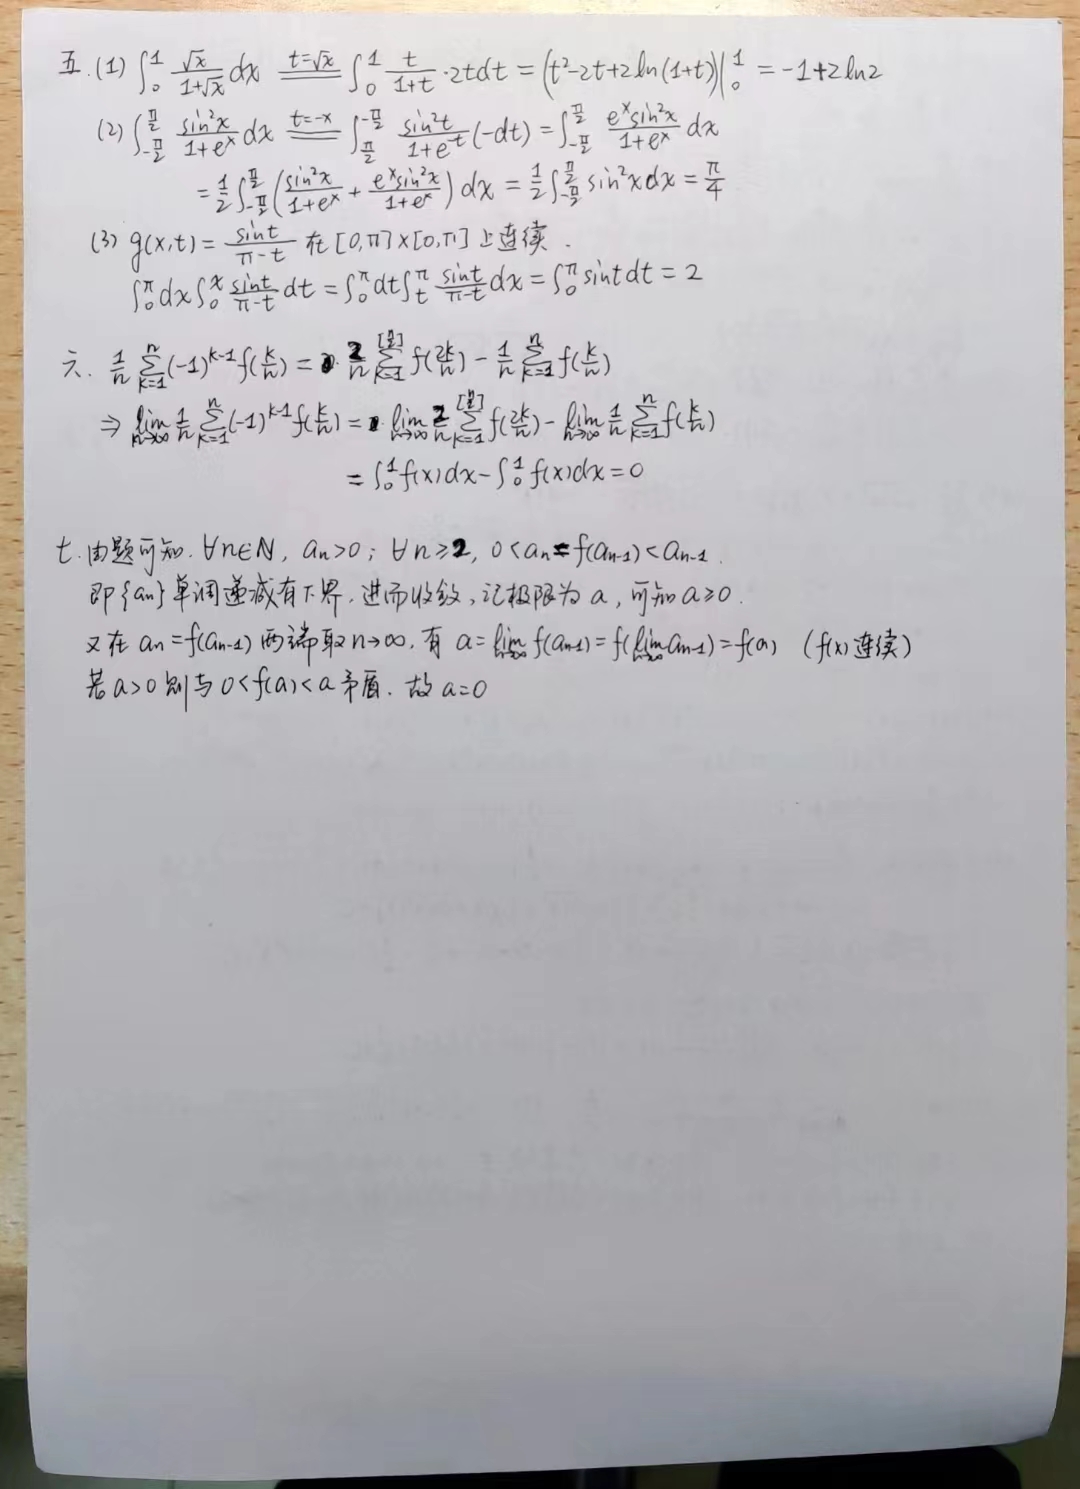 五.(1) ∫₀¹ √x/(1+√x) dx ══(t=√x) ∫₀¹ t/(1+t)·2tdt = (t²-2t+2ln(1+t))|₀¹ = -1+2ln2
(2) ∫_{-π/2}^{π/2} sin²x/(1+eˣ) dx ══(t=-x) ∫_{π/2}^{-π/2} sin²t/(1+e^{-t}) (-dt) = ∫_{-π/2}^{π/2} eˣsin²x/(1+eˣ) dx
= 1/2 ∫_{-π/2}^{π/2} (sin²x/(1+eˣ) + eˣsin²x/(1+eˣ)) dx = 1/2 ∫_{-π/2}^{π/2} sin²xdx = π/4
(3) g(x,t) = sint/(π-t) 在[0,π]×[0,π]上连续.
∫₀^π dx∫₀ˣ sint/(π-t) dt = ∫₀^π dt∫ₜ^π sint/(π-t) dx = ∫₀^π sintdt = 2
六. 1/n ∑_{k=1}^{n} (-1)^{k-1} f(k/n) = 2/n ∑_{k=1}^{[n/2]} f(2k/n) - 1/n ∑_{k=1}^{n} f(k/n)
⇒ lim_{n→∞} 1/n ∑_{k=1}^{n} (-1)^{k-1} f(k/n) = lim_{n→∞} 2/n ∑_{k=1}^{[n/2]} f(2k/n) - lim_{n→∞} 1/n ∑_{k=1}^{n} f(k/n)
= ∫₀¹ f(x)dx - ∫₀¹ f(x)dx = 0
七.由题可知. ∀n∈N, aₙ>0; ∀n≥2, 0<aₙ=f(aₙ₋₁)<aₙ₋₁.
即{aₙ}单调递减有下界,进而收敛,记极限为a,可知a≥0.
又在aₙ=f(aₙ₋₁)两端取n→∞,有 a=lim_{n→∞} f(aₙ₋₁)=f(lim_{n→∞} aₙ₋₁)=f(a) (f(x)连续)
若a>0则与0<f(a)<a矛盾.故a=0